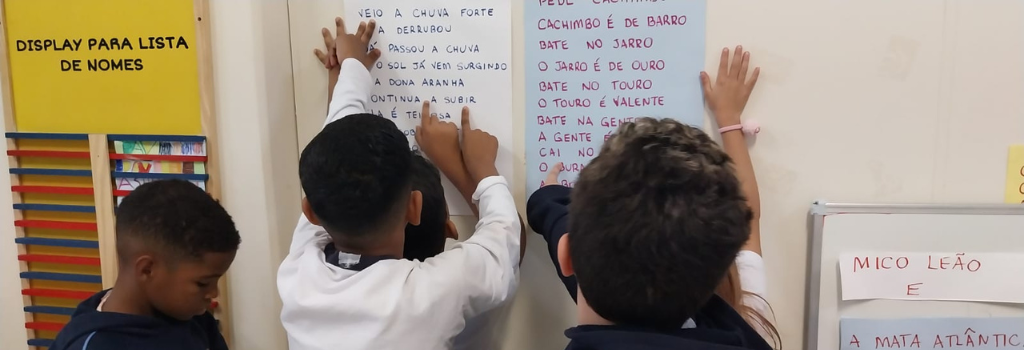 DISPLAY PARA LISTA
DE NOMES
VEIO A CHUVA FORTE
A DERRUBOU
PASSOU A CHUVA
O SOL JÁ VEM SURGINDO
A DONA ARANHA
CONTINUA A SUBIR
É
CACHIMBO É DE BARRO
BATE NO JARRO
O JARRO É DE OURO
BATE NO TOURO
O TOURO É VALENTE
BATE NA
A GENTE É
CAI NO
O
MICO LEÃO
E
A MATA